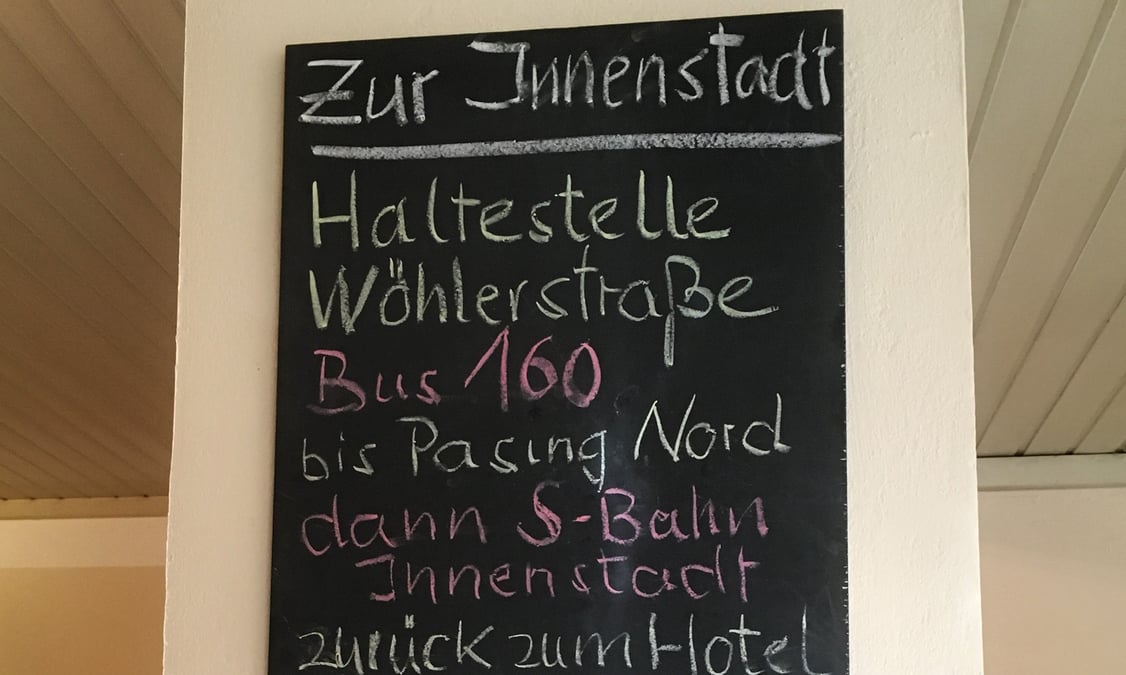 Zur Innenstadt
Haltestelle
Wöhlerstraße
Bus 160
bis Pasing Nord
dann S-Bahn
Innenstadt
zurück zum Hotel